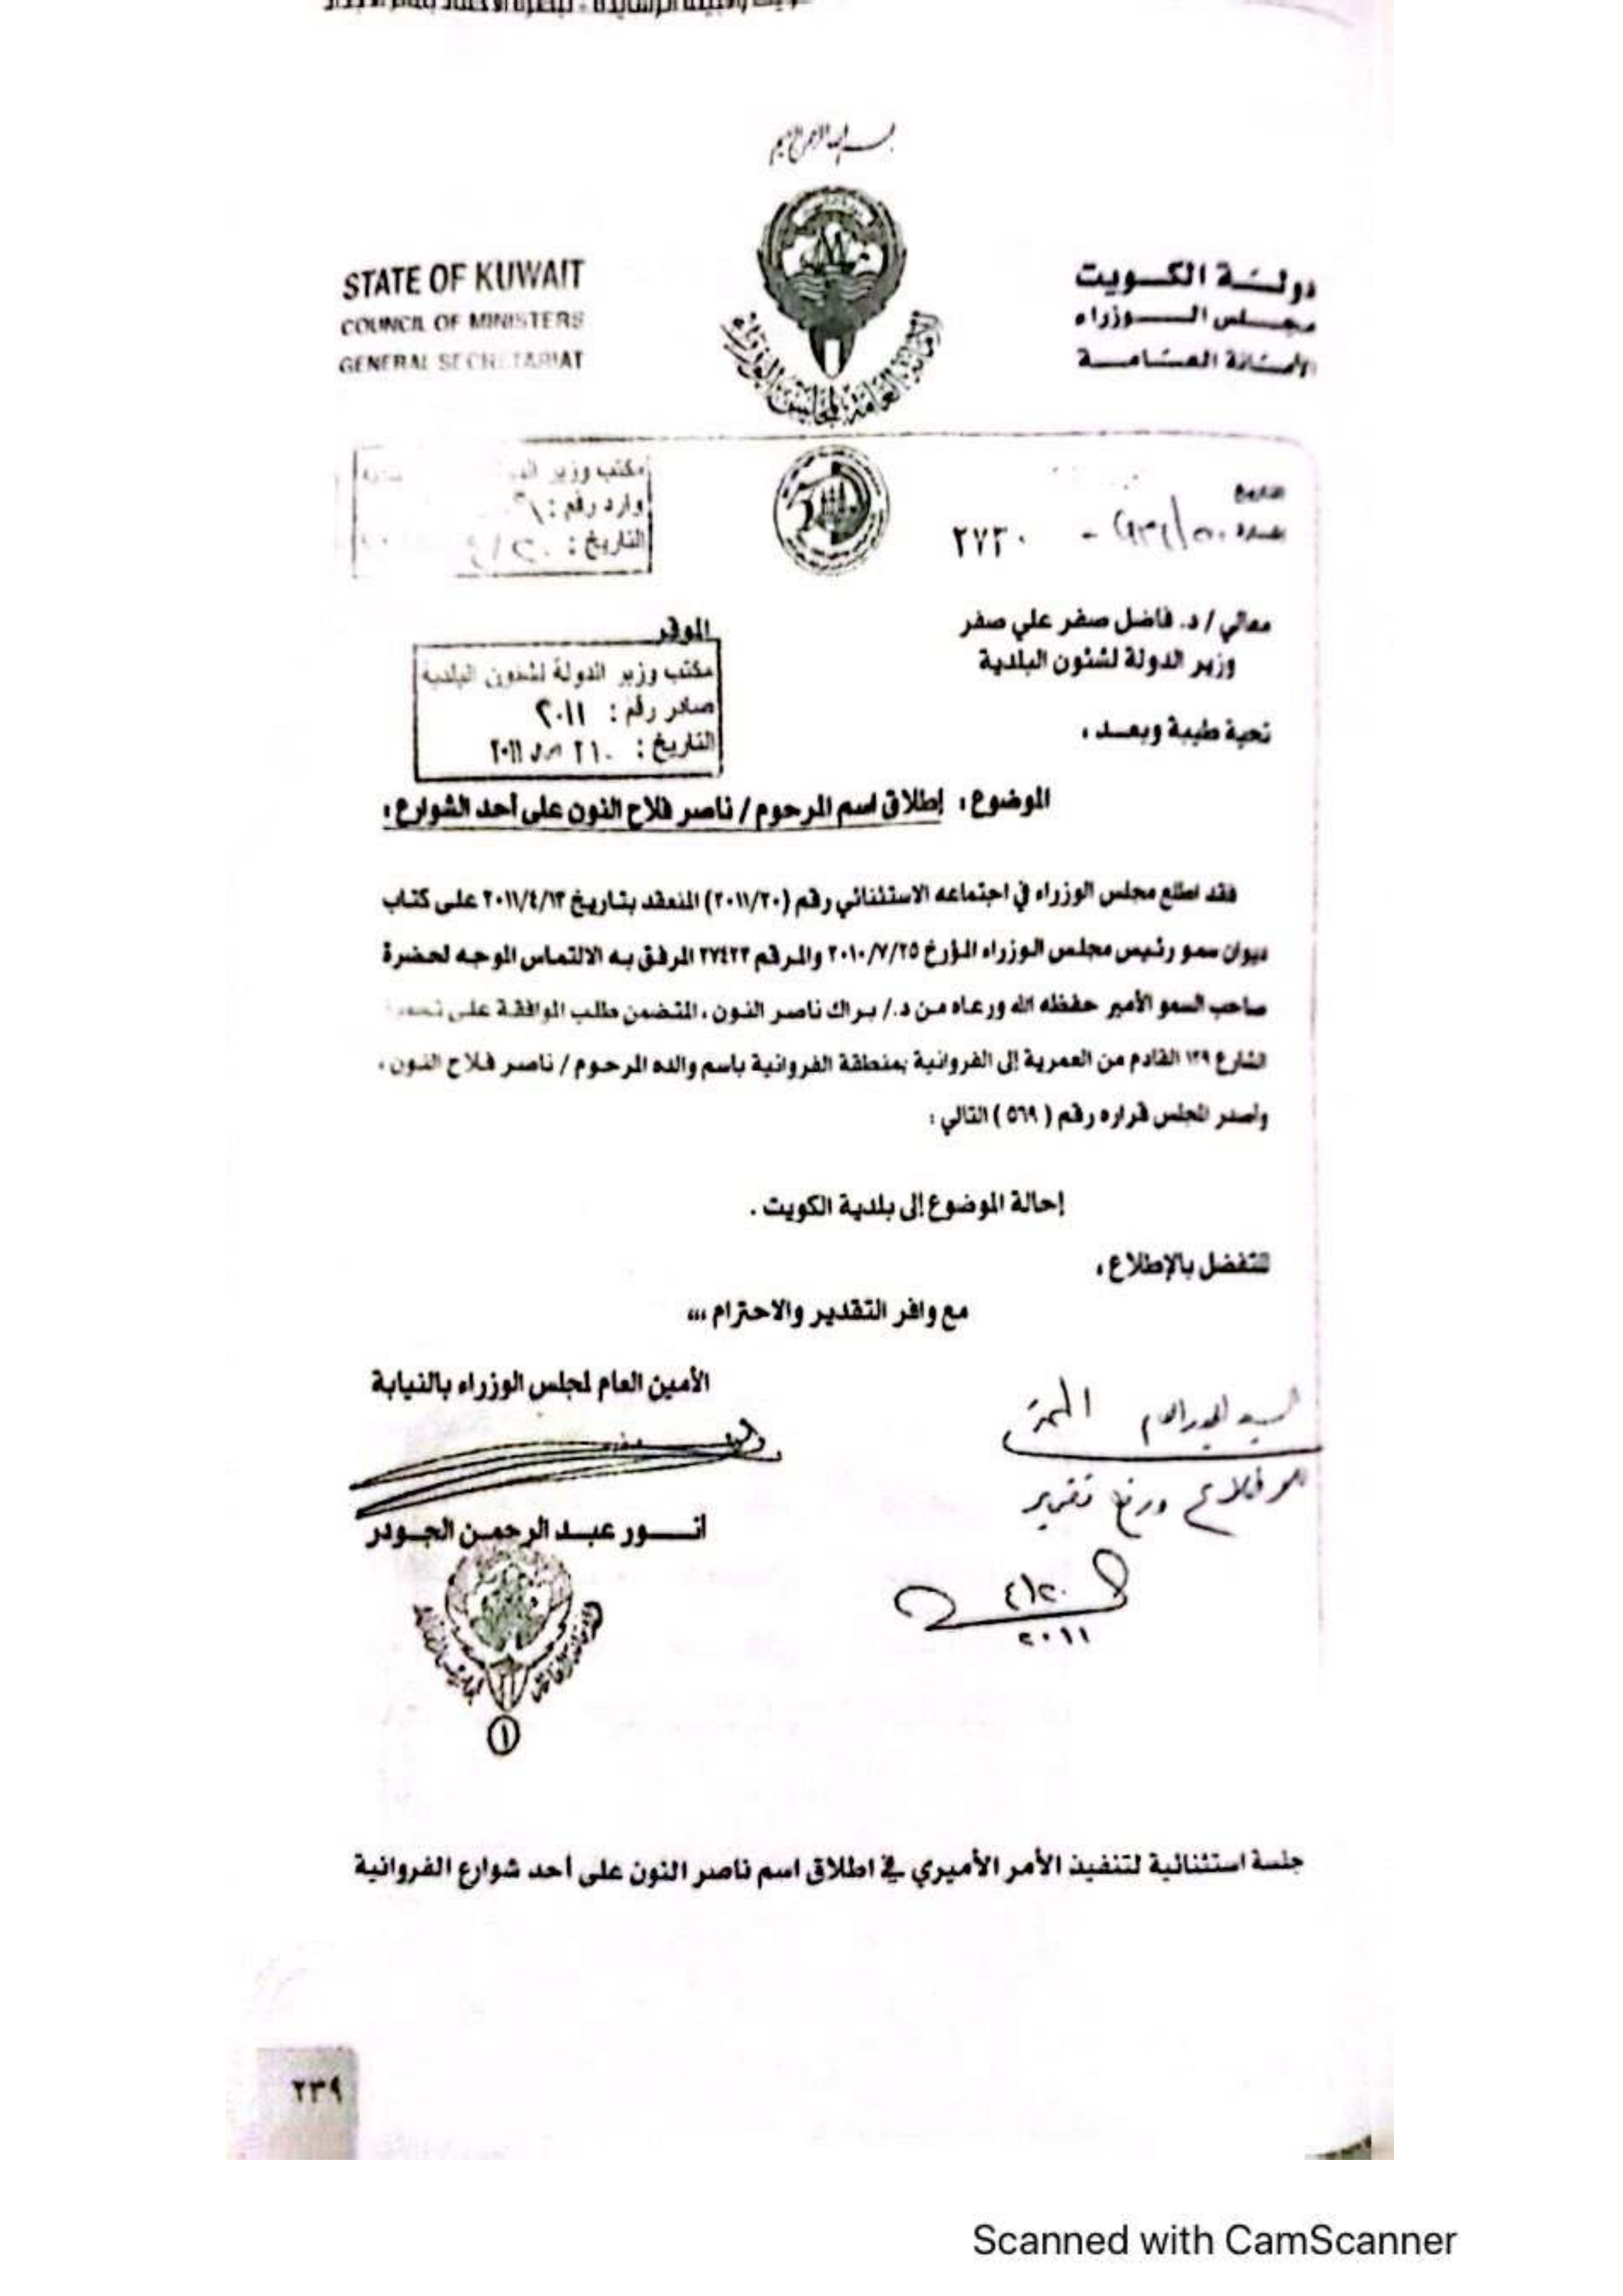 بسم الله الرحمن الرحيم
STATE OF KUWAIT
COUNCIL OF MINISTERS
GENERAL SECRETARIAT
دولة الكويت
مجلس الوزراء
الأمانة العامة
الأمانة العامة لمجلس الوزراء
مكتب وزير
وارد رقم :
التاريخ :
التاريخ
٢٧٣٠ -
معالي / د. فاضل صفر علي صفر
الموقر
وزير الدولة لشئون البلدية
مكتب وزير الدولة لشئون البلدية
صادر رقم : ٢٠١١
التاريخ :
تحية طيبة وبعد ،
الموضوع : إطلاق اسم المرحوم / ناصر فلاح النون على أحد الشوارع :
فقد اطلع مجلس الوزراء في اجتماعه الاستثنائي رقم (٢٠١١/٢٠) المنعقد بتاريخ ٢٠١١/٤/١٣ على كتاب
ديوان سمو رئيس مجلس الوزراء المؤرخ ٢٠١٠/٧/٢٥ والمرقم ٢٧٤٢٣ المرفق به الالتماس الموجه لحضرة
صاحب السمو الأمير حفظه الله ورعاه من د./ براك ناصر النون ، المتضمن طلب الموافقة على تسمية
الشارع ١٢٩ القادم من العمرية إلى الفروانية بمنطقة الفروانية باسم والده المرحوم / ناصر فلاح النون .
وأصدر المجلس قراره رقم ( ٥٦٩ ) التالي :
إحالة الموضوع إلى بلدية الكويت .
للتفضل بالإطلاع ،
مع وافر التقدير والاحترام ،،،
الأمين العام لمجلس الوزراء بالنيابة
انور عبد الرحمن الجودر
السيد المدير العام المحترم
ورفع تقرير
٤/٢٠
٢٠١١
١
جلسة استثنائية لتنفيذ الأمر الأميري في اطلاق اسم ناصر النون على أحد شوارع الفروانية
٢٣٩
Scanned with CamScanner